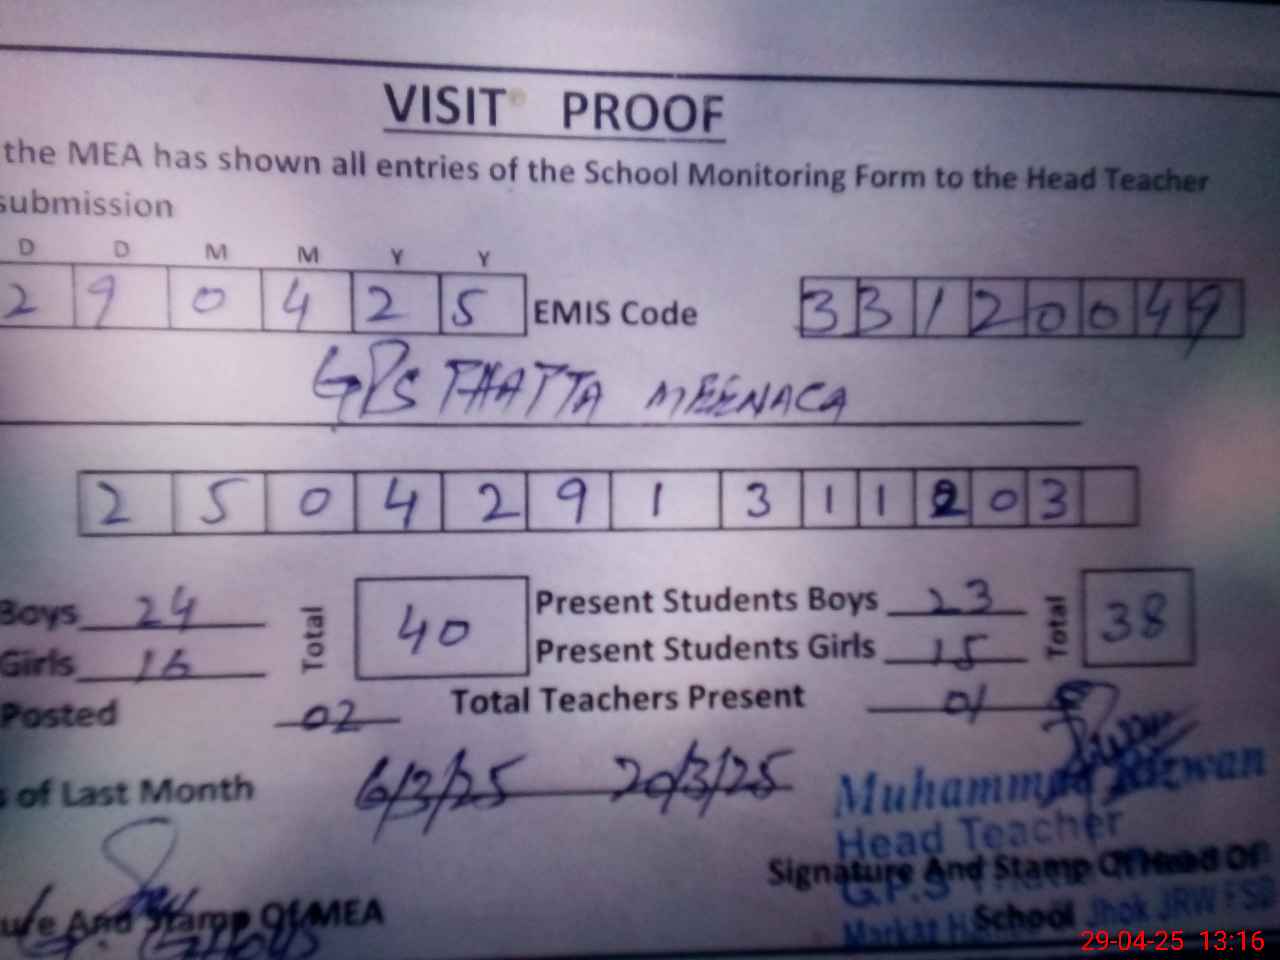 VISIT PROOF
the MEA has shown all entries of the School Monitoring Form to the Head Teacher
submission
D D M M Y Y
2 9 0 4 2 5 EMIS Code 3 3 1 2 0 0 4 9
GPS THATTA MEENACA
2 5 0 4 2 9 1 3 1 1 2 0 3
Boys 24 Total 40 Present Students Boys 23 Total 38
Girls 16 Present Students Girls 15
Posted 02 Total Teachers Present 01
of Last Month 6/3/25 20/3/25
Muhammad Rizwan
Head Teacher
Signature And Stamp Of Head Of
G.P.S
School Jhok JRW FSD
Markaz
And Stamp Of MEA
29-04-25 13:16